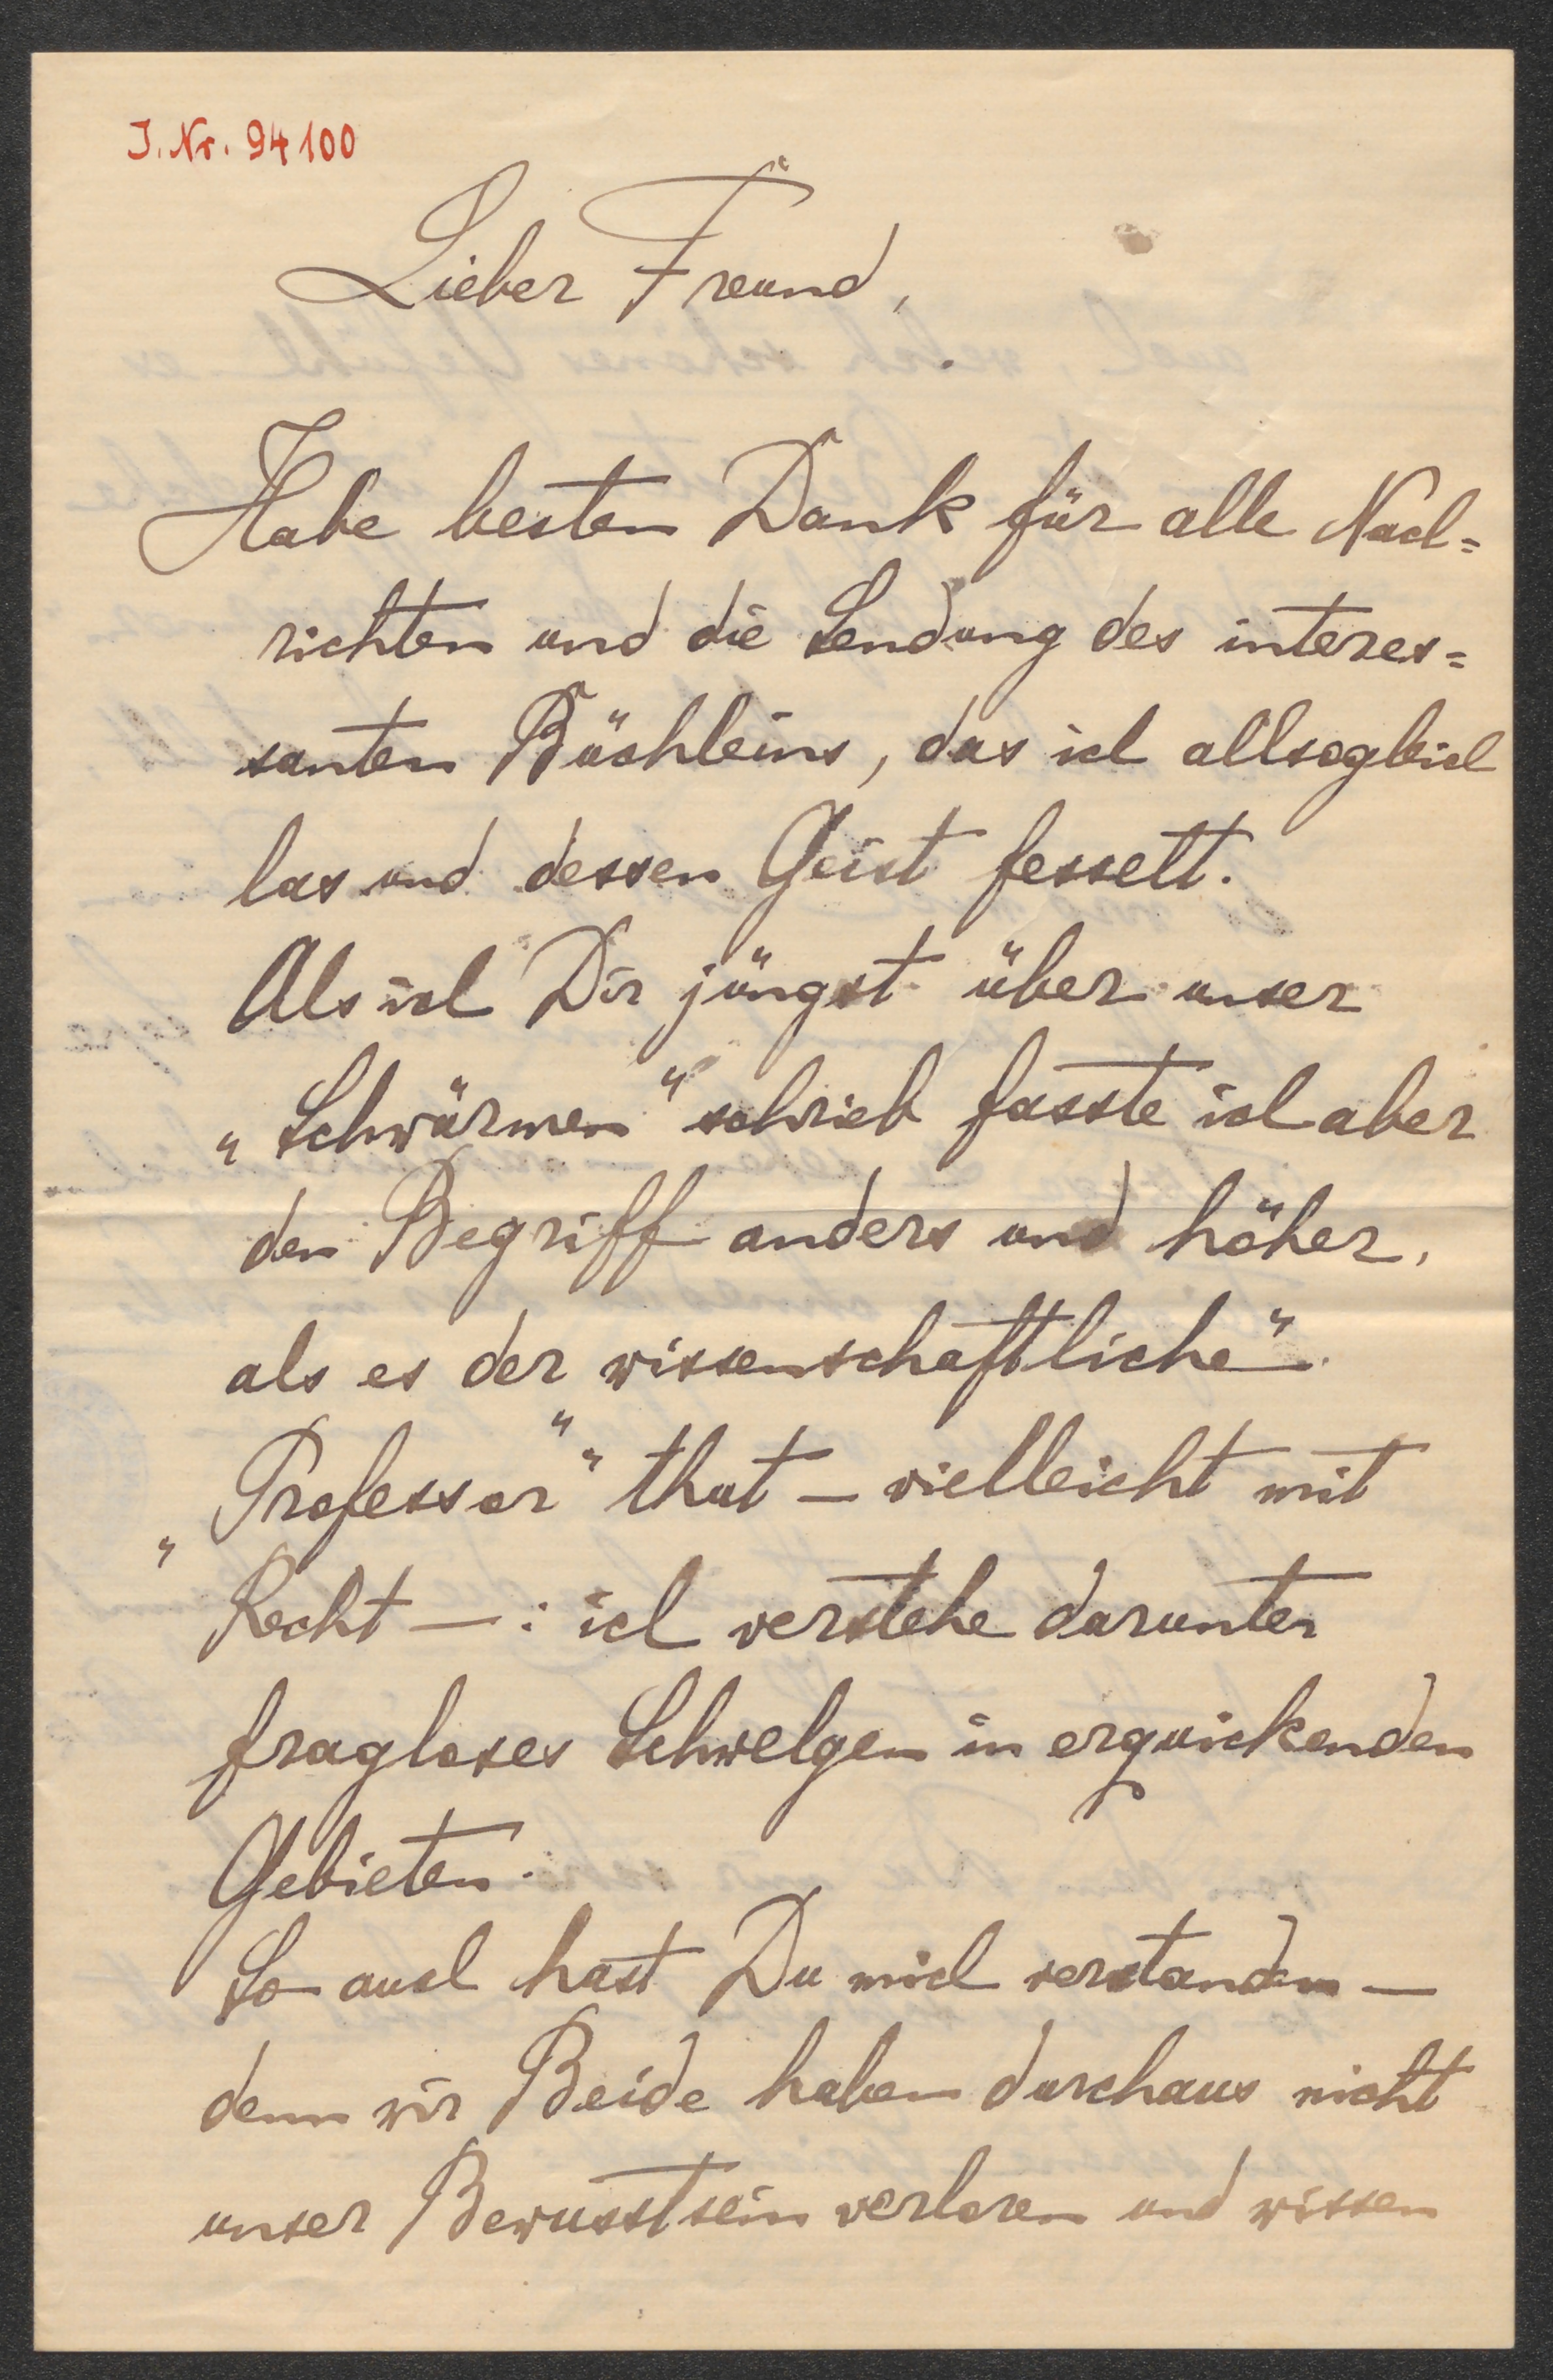 J. Nr. 94100
Lieber Freund,
Habe besten Dank für alle Nach=
richten und die Sendung des interes=
santen Büchleins, das ich allsogleich
las und dessen Geist fesselt.
Als ich Dir jüngst über unser
„Schwärmen“ schrieb fasste ich aber
den Begriff anders und höher,
als es der wissenschaftliche“
„Professor“ “ that – vielleicht mit
Recht – : ich verstehe darunter
fragloses Schwelgen in erquickenden
Gebieten.
So auch hast Du mich verstanden –
denn wir Beide haben durchaus nicht
unser Bewusstsein verloren und wissen